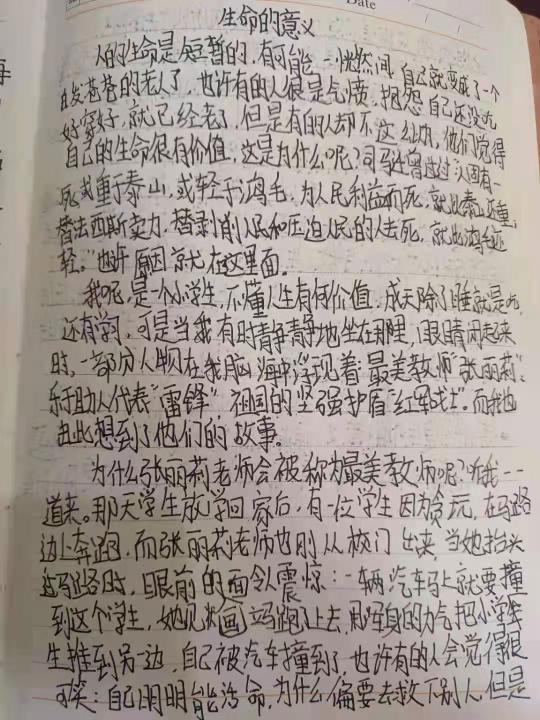 Date
生命的意义
人的生命是短暂的,有可能一恍然间,自己就变成了一个
白发苍苍的老人了,也许有的人很是气愤,抱怨自己还没吃
好穿好,就已经老了,但是有的人却不这么认为,他们觉得
自己的生命很有价值,这是为什么呢?司马迁曾说过:“人固有一
死或重于泰山,或轻于鸿毛,为人民利益而死,就比泰山还重;
替法西斯卖力,替剥削人民和压迫人民的人去死,就比鸿毛还
轻。”也许原因就在这里面。
我呢,是一个小学生,不懂人生有何价值,成天除了睡就是吃,
还有学习,可是当我有时静静地坐在那里,眼睛闭起来
时,一部分人物在我脑海中浮现着“最美教师”张丽莉”,
乐于助人代表“雷锋”祖国的坚强护盾“红军战士”。而我也
由此想到了他们的故事。
为什么张丽莉老师会被称为最美教师呢?听我一一
道来。那天学生放学回家后,有一位学生因为贪玩,在马路
边上奔跑,而张丽莉老师也刚从校门出来,当她抬头
过马路时,眼前的一面令人震惊:一辆汽车马上就要撞
到这个学生,她见状立马跑了上去,用身的力气把小学生
生推到另一边,自己被汽车撞到了,也许有的人会觉得很
可笑:自己明明能活命,为什么偏要去救下别人,但是